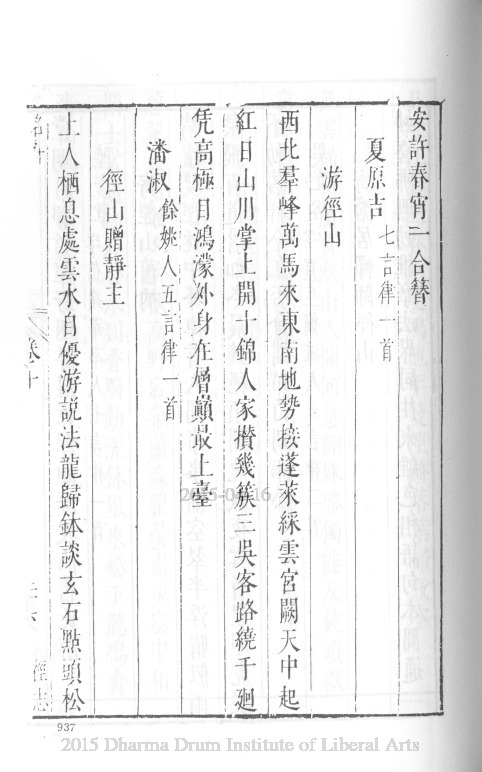 安許春宵一合簪
夏原吉七言律一首
游徑山
西北羣峰萬馬來東南地勢接蓬萊綵雲宮闕天中起
紅日山川掌上開十錦人家攅幾簇三吳客路繞千廻
凭高極目鴻濛外身在層巔最上臺
潘淑餘姚人五言律一首
徑山贈靜主
上人栖息處雲水自優游説法龍歸鉢談玄石點頭松
卷十
徑志
937
2015 Dharma Drum Institute of Liberal Arts